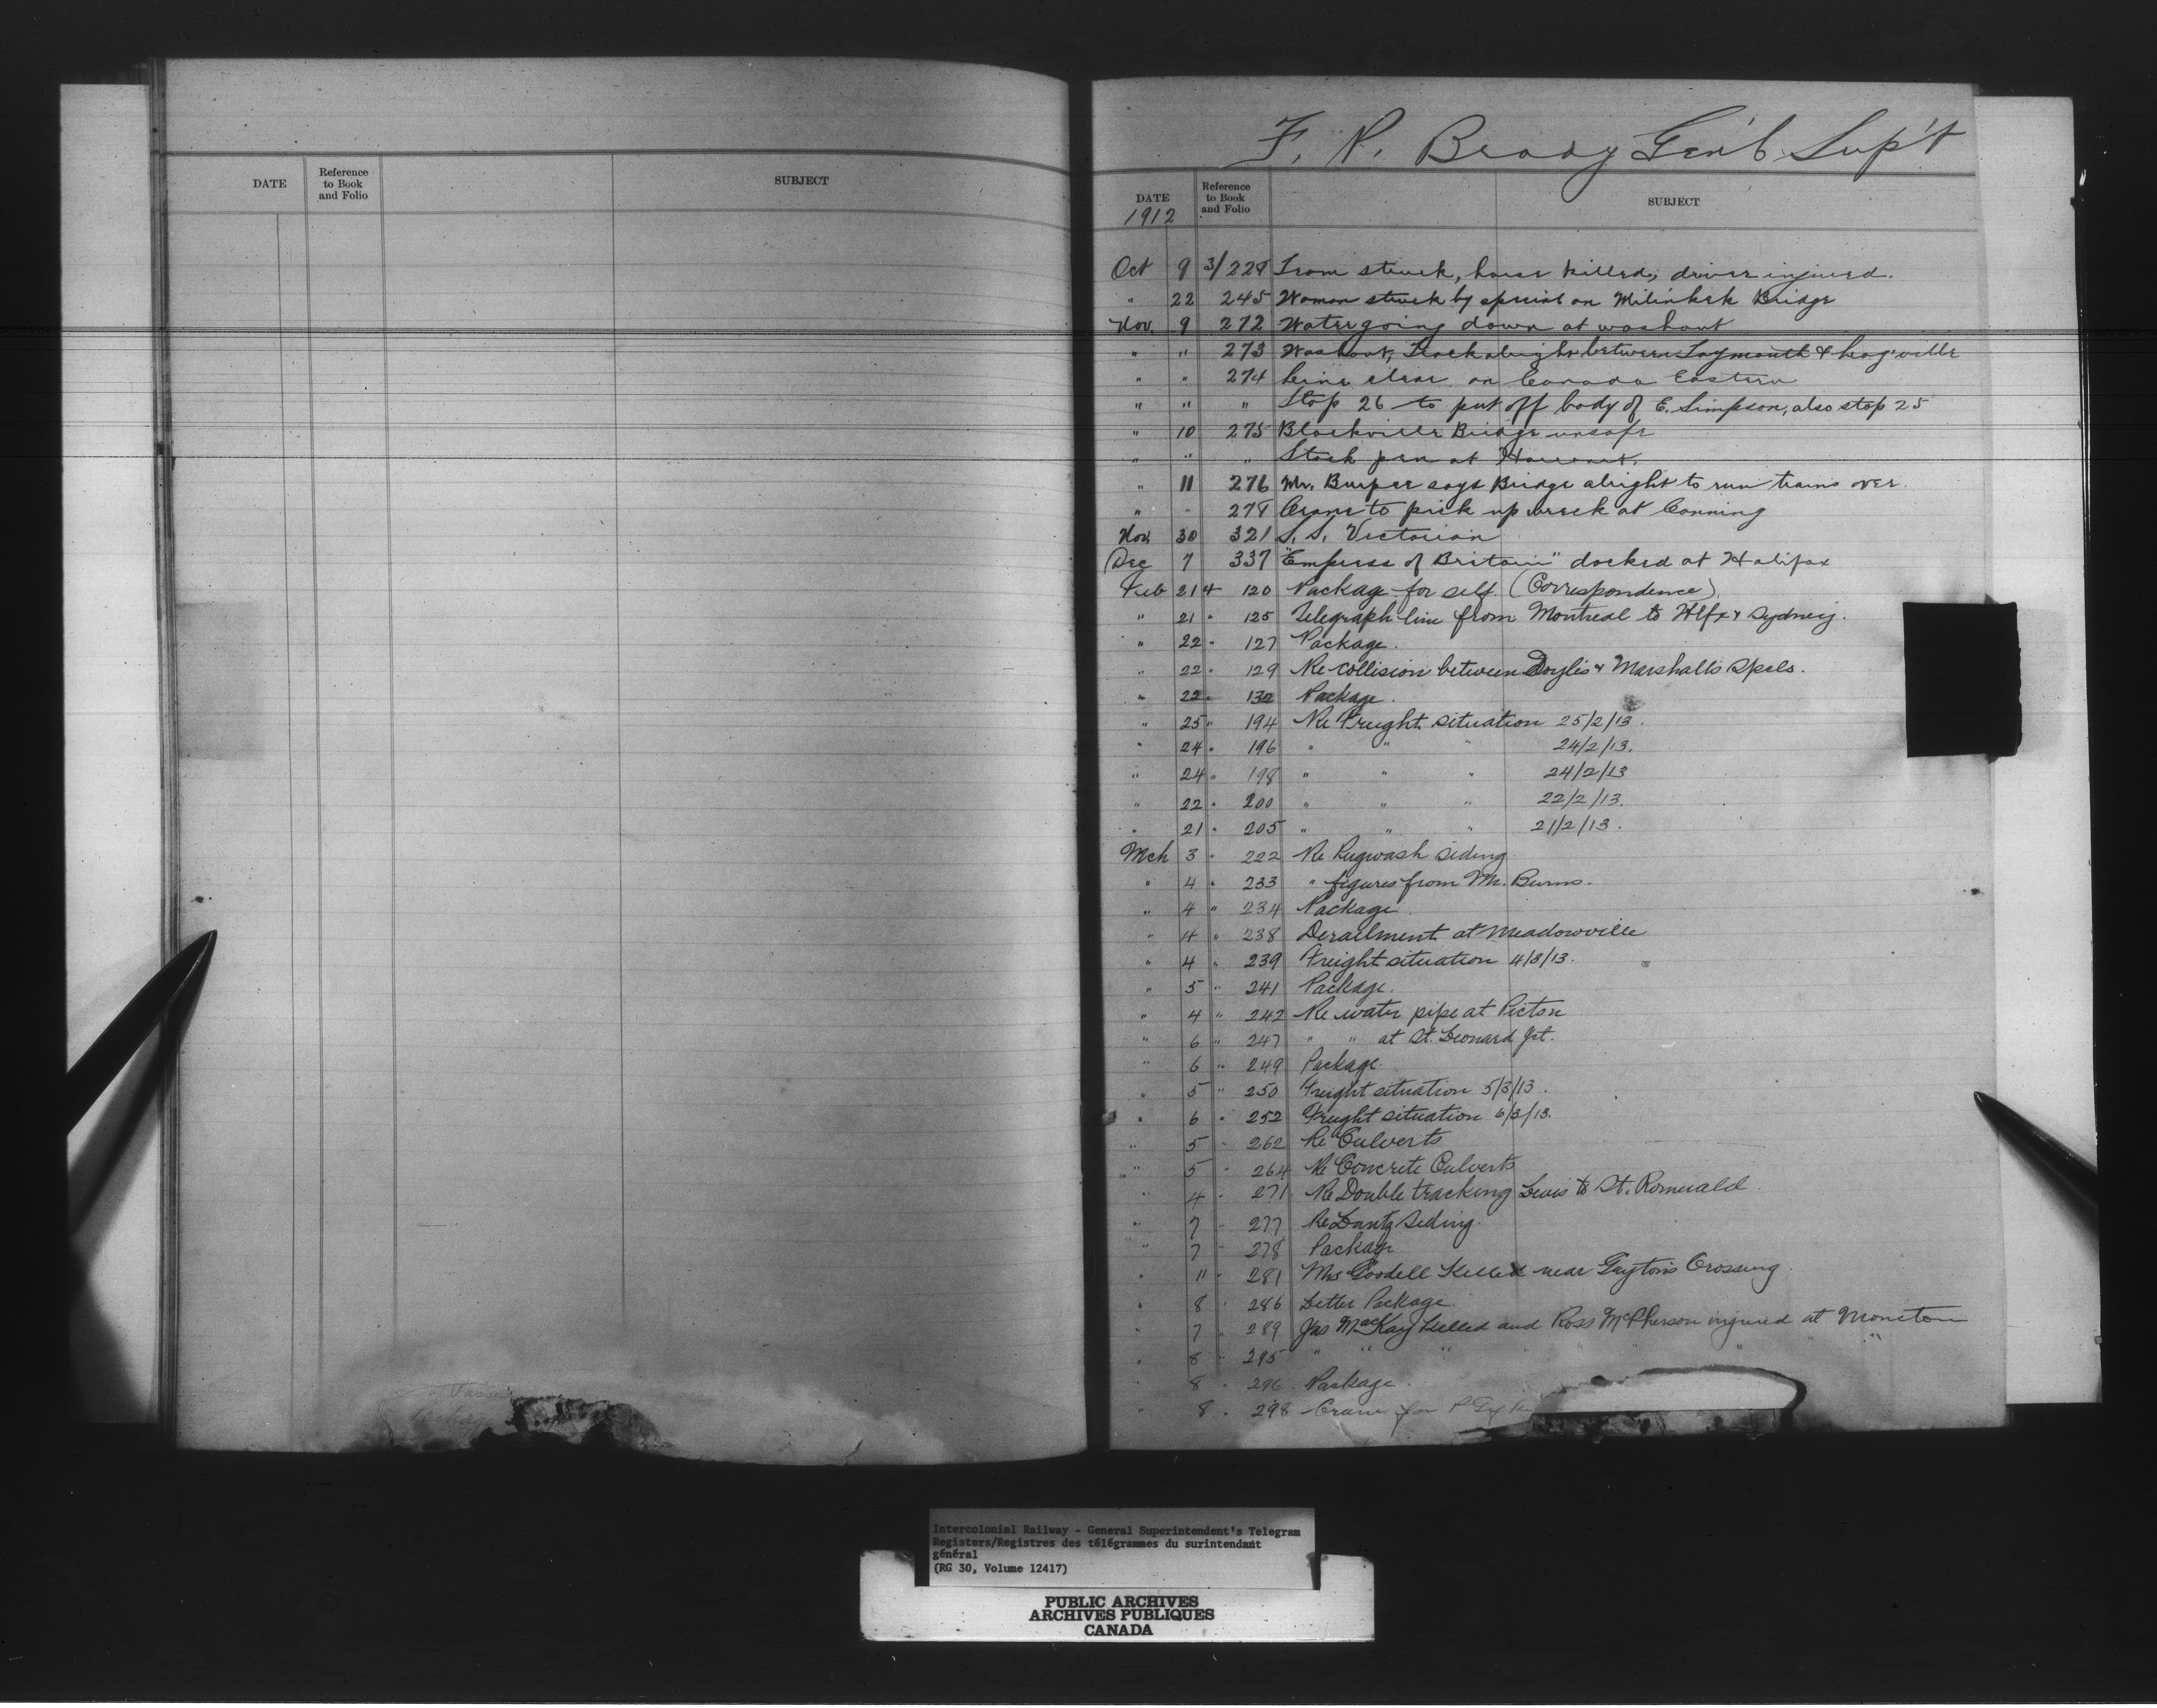 DATE
Reference
to Book
and Folio
SUBJECT
F. P. Brady Gen'l Sup't
DATE
1912
Reference
to Book
and Folio
SUBJECT
Oct 9 3/228 Team struck, horse killed, driver injured.
" 22 245 Woman struck by special on Bridge
Nov. 9 272 Water going down at washout
" " 273 Washout, Track alright between Taymouth &
" " 274 Line clear on Canada Eastern
" " " Stop 26 to put off body of E. Simpson, also stop 25
" 10 275 Blackville Bridge unsafe
" " " Stock pen at Harcourt.
" 11 276 Mr. Burpee says Bridge alright to run trains over.
" " 278 Crane to pick up wreck at Canning
Nov. 30 321 S. S. Victorian
Dec 7 337 "Empress of Britain" docked at Halifax
Feb 21 4 120 Package for self (Correspondence).
" 21 " 125 Telegraph line from Montreal to Hlfx & Sydney.
" 22 " 127 Package.
" 22 " 129 Re collision between Doyle's & Marshall's Spcls.
" 22 " 132 Package.
" 25 " 194 Re Freight situation 25/2/13.
" 24 " 196 " " " 24/2/13.
" 24 " 198 " " " 24/2/13
" 22 " 200 " " " 22/2/13.
" 21 " 205 " " " 21/2/13.
Mch 3 " 222 Re Pugwash siding
" 4 " 233 " figures from Mr. Burns.
" 4 " 234 Package.
" 4 " 238 Derailment at Meadowville
" 4 " 239 Freight situation 4/3/13.
" 5 " 241 Package.
" 4 " 242 Re water pipe at Pictou
" 6 " 247 " " at St. Leonard Jct.
" 6 " 249 Package.
" 5 " 250 Freight situation 5/3/13.
" 6 " 252 Freight situation 6/3/13.
" 5 " 262 Re Culverts
" 5 " 264 Re Concrete Culverts
" 4 " 271 Re Double tracking Levis to St. Romuald
" 7 " 277 Re Lantz Siding.
" 7 " 278 Package
" 11 " 281 Mrs Goodell Killed near Gayton's Crossing.
" 8 " 286 Letter Package.
" 7 " 289 Jas MacKay killed and Ross McPherson injured at Moncton
" 8 " 295 " " " " " "
" 8 " 296 Package.
" 8 " 298 Crane for
Package
Intercolonial Railway - General Superintendent's Telegram
Registers/Registres des télégrammes du surintendant
général
(RG 30, Volume 12417)
PUBLIC ARCHIVES
ARCHIVES PUBLIQUES
CANADA